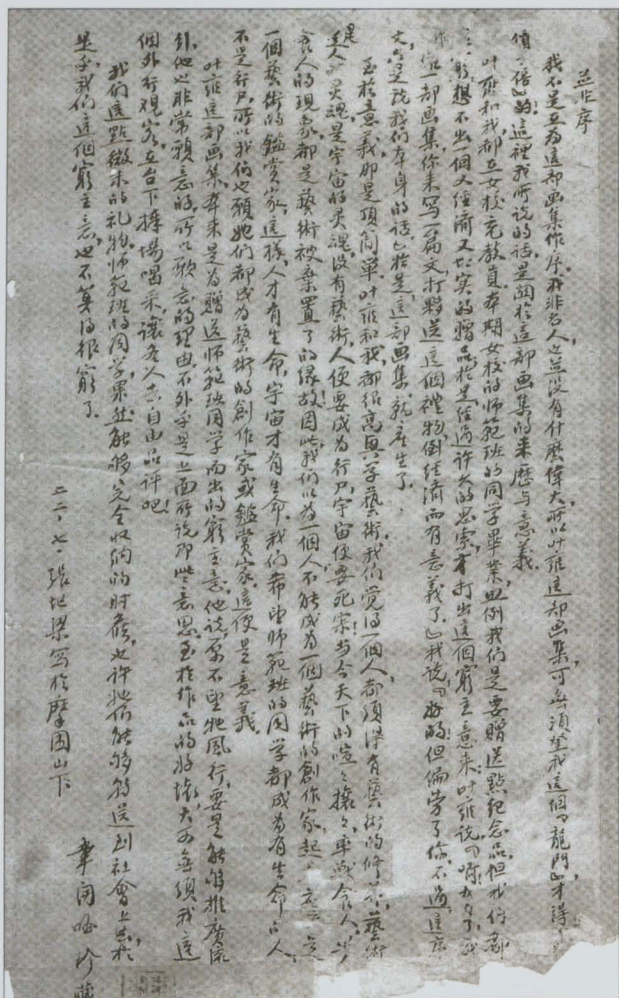 並非序
我不是在為這部画集作序,我非名人,也並沒有什麼偉大,所以叶雍這部画集可無須望我這個『龍門』才得
價倍的。這裡我所說的話,是關於這部画集的来歷与意義。
叶雍和我都在女校充教員,本期女校的师範班的同學畢業,照例我們是要贈送點紀念品,但我们都
想不出一個又經濟又切实的贈品,於是經過許久的思索,才打出這個窮主意来。叶雍說:『我
一部画集,你来写一篇文,打夥送這個禮物,倒经濟而有意義了。』我說:『好的!但偏劳了你,不過這序
文,只是說我们本身的話。』於是這部画集就產生了。
至於意義,那是頂簡單,叶雍和我都很高興學藝術,我们觉得一個人,都須得有藝術的修养,藝術
是人灵魂,是宇宙的灵魂,没有藝術,人便要成為行尸,宇宙便要死寂,当今天下的喧喧攘攘,率獸食人,少
数人的現象,都是藝術被棄置了的缘故。因此,我们以為一個人,不能成為一個藝術的創作家,起
一個藝術的鑑賞家,這樣,人才有生命,宇宙才有生命。我们希望师範班的同学都成為有生命的人,
不是行尸,所以我们也願她们都成為藝術的創作家或鑑賞家,這便是意義。
叶雍這部画集本来是為贈送师範班同学而出的窮主意,他説:原不望牠風行,要是能够推廣流
他也非常願意的,所以歌的理由,不外乎是上面所说那些意思,至於作品的好壞,大可無須我這
個外行观客,在台下捧場喝采,讓各人去自由品评吧!
我们這點微末的礼物,师範班的同学果然能够完全收纳的时候,也许她们能够转送到社會上去,於
是乎我们這個窮主意,也不算得很窮了。
二二,七,張地梁寫於摩圍山下
章开 珍藏